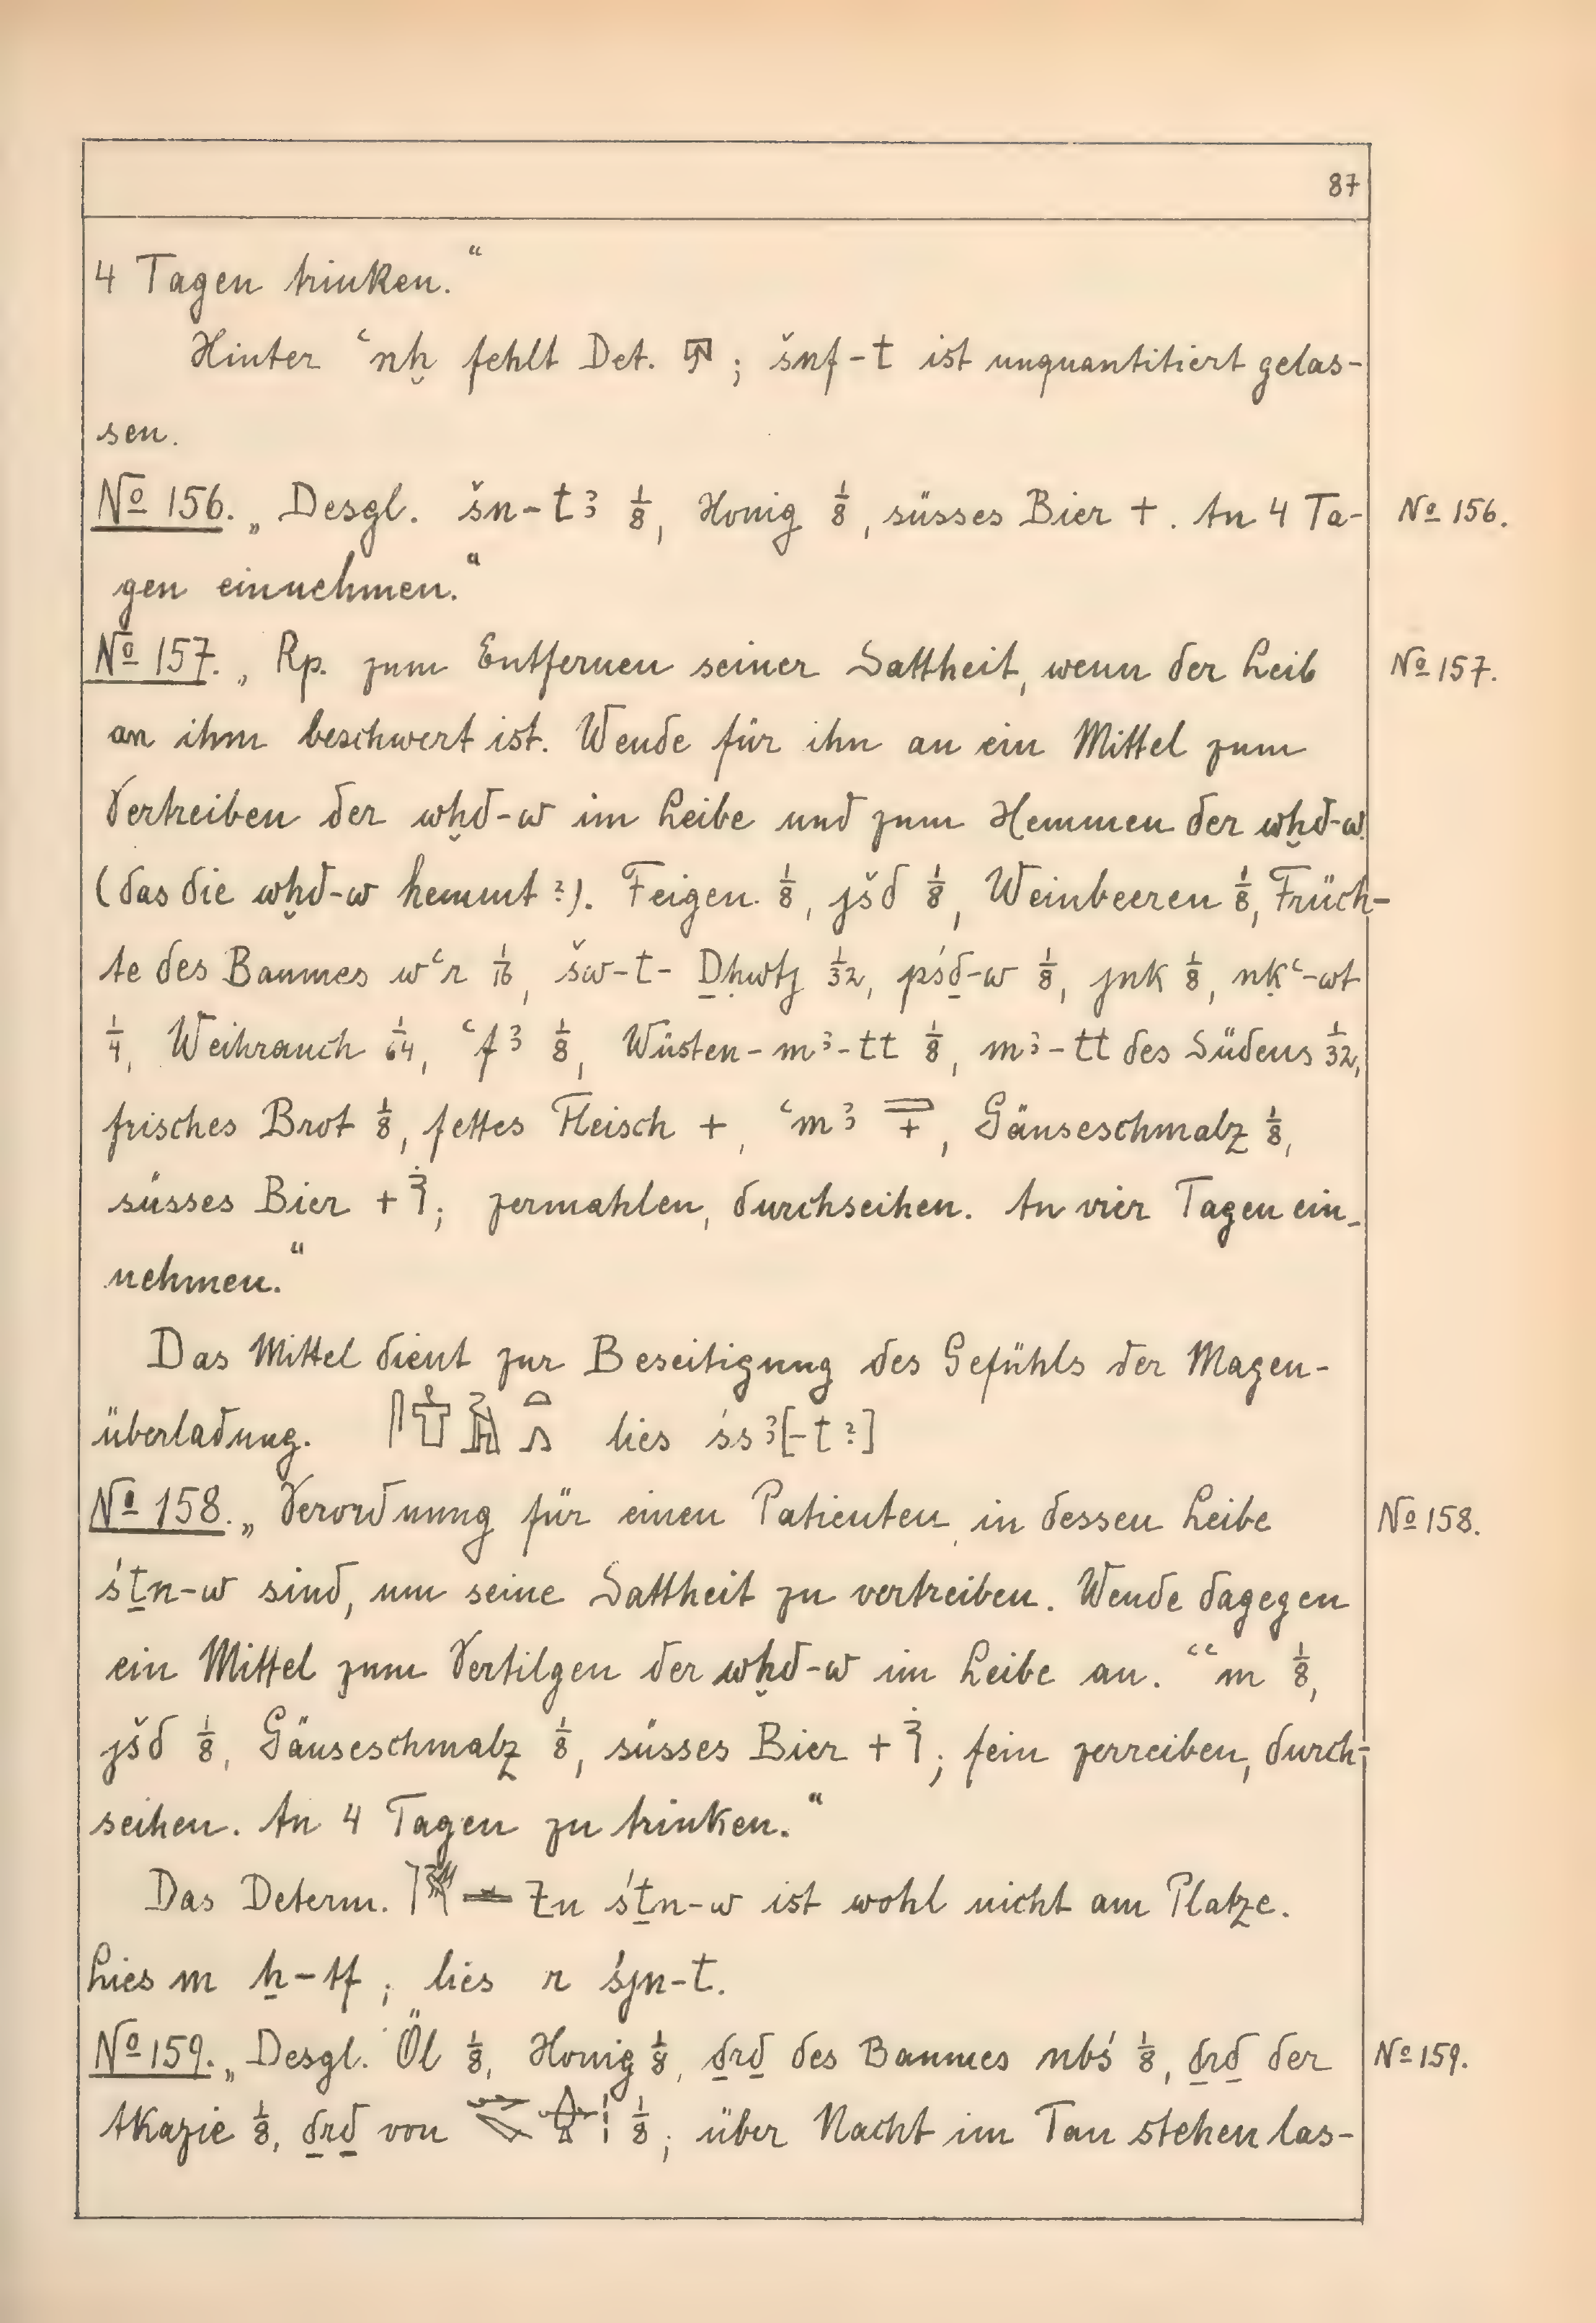 87
4 Tagen trinken.“
Hinter ꜥnḫ fehlt Det. ; šnf-t ist unquantitiert gelas-
sen.
No 156. „Desgl. šn-tꜣ 1/8, Honig 1/8, süsses Bier +. An 4 Ta- No 156.
gen einnehmen.“
No 157. „Rp. zum Entfernen seiner Sattheit, wenn der Leib No 157.
an ihm beschwert ist. Wende für ihn an ein Mittel zum
Vertreiben der wḫd-w im Leibe und zum Hemmen der wḫd-w
(das die wḫd-w hemmt?). Feigen 1/8, jšd 1/8, Weinbeeren 1/8, Früch-
te des Baumes wꜥn 1/16, šw-t-Ḏḥwtj 1/32, pśḏ-w 1/8, jnk 1/8, nḳꜥ-wt
1/4, Weihrauch 1/64, ꜥfꜣ 1/8, Wüsten-mꜣ-tt 1/8, mꜣ-tt des Südens 1/32,
frisches Brot 1/8, fettes Fleisch +, ꜥmꜣ +, Gänseschmalz 1/8,
süsses Bier + ; zermahlen, durchseihen. An vier Tagen ein-
nehmen.“
Das Mittel dient zur Beseitigung des Gefühls der Magen-
überladung. lies śsꜣ[-t?]
No 158. „Verordnung für einen Patienten, in dessen Leibe No 158.
śṯn-w sind, um seine Sattheit zu vertreiben. Wende dagegen
ein Mittel zum Vertilgen der wḫd-w im Leibe an. ꜥꜥm 1/8,
jšd 1/8, Gänseschmalz 1/8, süsses Bier + ; fein zerreiben, durch-
seihen. An 4 Tagen zu trinken.“
Das Determ. zu śṯn-w ist wohl nicht am Platze.
Lies m ẖ-tf; lies r śjn-t.
No 159. „Desgl. Öl 1/8, Honig 1/8, ḏrḏ des Baumes nbś 1/8, ḏrḏ der No 159.
Akazie 1/8, ḏrḏ von 1/8; über Nacht im Tau stehen las-